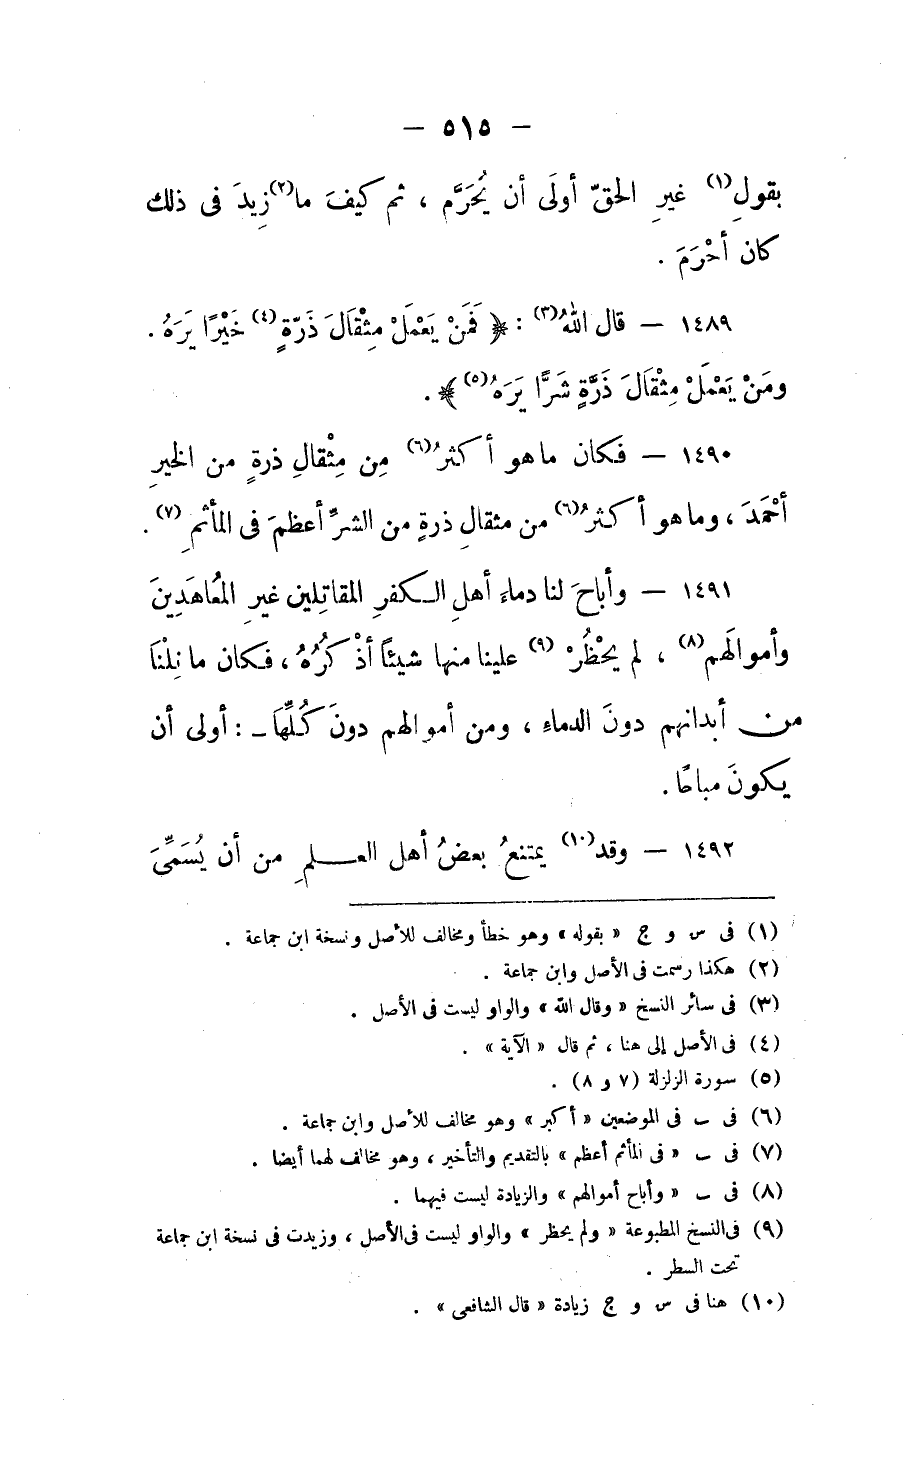 — ٥١٥ —
بقولِ(١) غيرِ الحقّ أولَى أن يُحَرَّم ، ثم كيفَ ما(٢)زِيدَ فى ذلك
كان أحْرَمَ .
١٤٨٩ — قال اللهُ(٣) : ﴿ فَمَنْ يَعْمَلْ مِثْقَالَ ذَرَّةٍ(٤) خَيْرًا يَرَهُ .
ومَنْ يَعْمَلْ مِثْقَالَ ذَرَّةٍ شَرًّا يَرَهُ(٥) ﴾ .
١٤٩٠ — فكان ماهو أكثرُ(٦) مِن مِثْقالِ ذرةٍ من الخيرِ
أحْمَدَ ، وماهو أكثرُ(٦) من مثقالِ ذرةٍ من الشرِّ أعظمَ فى المأثمِ(٧) .
١٤٩١ — وأباحَ لنا دماءَ أهلِ الكفرِ المقاتِلين غيرِ المُعَاهَدِينَ
وأموالَهم(٨) ، لم يحْظُرْ(٩) علينا منها شيئاً أذْكُرُهُ ، فكان ما نِلْنَا
من أبدانهم دونَ الدماءِ ، ومن أموالهم دونَ كُلِّهَا ـ : أولى أن
يكونَ مباحًا .
١٤٩٢ — وقد(١٠) يمتنعُ بعضُ أهل العلمِ من أن يُسَمِّىَ
(١) فى س و ج « بقوله » وهو خطأ ومخالف للأصل ونسخة ابن جماعة .
(٢) هكذا رسمت فى الأصل وابن جماعة .
(٣) فى سائر النسخ « وقال الله » والواو ليست فى الأصل .
(٤) فى الأصل إلى هنا ، ثم قال « الآية » .
(٥) سورة الزلزلة (٧ و ٨) .
(٦) فى ب فى الموضعين « أكبر » وهو مخالف للأصل وابن جماعة .
(٧) فى ب « فى المأثم أعظم » بالتقديم والتأخير ، وهو مخالف لهما أيضا .
(٨) فى ب « وأباح أموالهم » والزيادة ليست فيهما .
(٩) فى النسخ المطبوعة « ولم يحظر » والواو ليست فى الأصل ، وزيدت فى نسخة ابن جماعة
تحت السطر .
(١٠) هنا فى س و ج زيادة « قال الشافعى » .